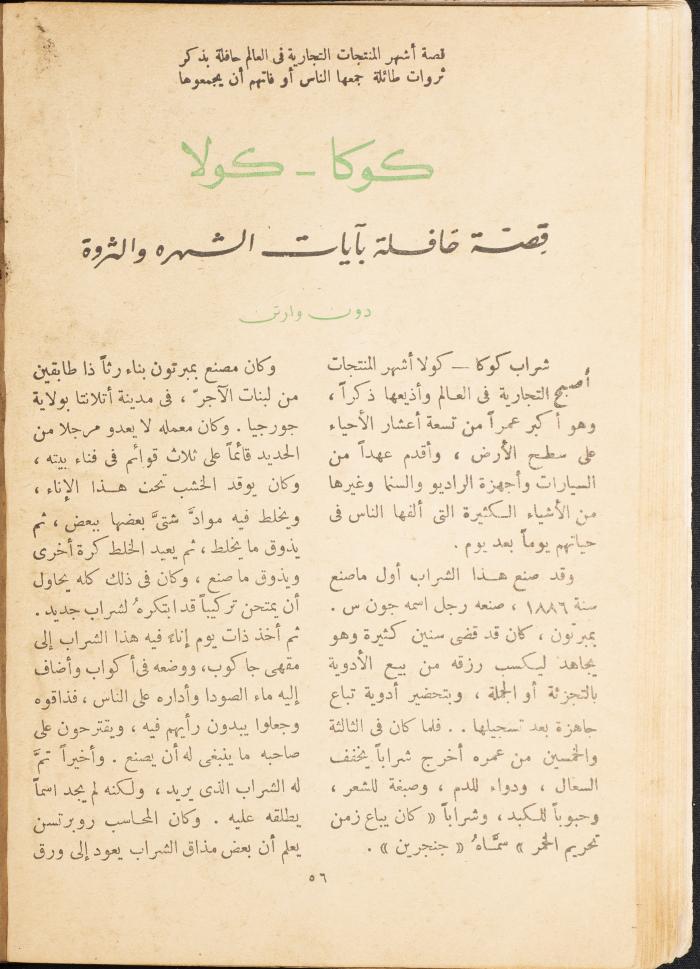 قصة أشهر المنتجات التجارية فى العالم حافلة بذكر
ثروات طائلة جمعها الناس أو فاتهم أن يجمعوها
كوكا - كولا
قصة حافلة بآيات الشهره والثروة
دون وارتن
أصبح شراب كوكا — كولا أشهر المنتجات
التجارية فى العالم وأذيعها ذكراً ،
وهو أكبر عمراً من تسعة أعشار الأحياء
على سطح الأرض ، وأقدم عهداً من
السيارات وأجهزة الراديو والسنما وغيرها
من الأشياء الكثيرة التى ألفها الناس فى
حياتهم يوماً بعد يوم .
وقد صنع هذا الشراب أول ماصنع
سنة ١٨٨٦ ، صنعه رجل اسمه جون س .
بمبرتون ، كان قد قضى سنين كثيرة وهو
يجاهد ليكسب رزقه من بيع الأدوية
بالتجزئة أو الجملة ، وبتحضير أدوية تباع
جاهزة بعد تسجيلها . . فلما كان فى الثالثة
والخمسين من عمره أخرج شراباً يخفف
السعال ، ودواء للدم ، وصبغة للشعر ،
وحبوباً للكبد ، وشراباً « كان يباع زمن
تحريم الخمر » سمَّاهُ « جنجرين » .
وكان مصنع بمبرتون بناء رثاً ذا طابقين
من لبنات الآجرّ ، فى مدينة أتلانتا بولاية
جورجيا . وكان معمله لا يعدو مرجلا من
الحديد قائماً على ثلاث قوائم فى فناء بيته ،
وكان يوقد الخشب تحت هذا الإناء ،
ويخلط فيه موادَّ شتىَّ بعضها ببعض ، ثم
يذوق ما يخلط ، ثم يعيد الخلط كرة أخرى
ويذوق ما صنع ، وكان فى ذلك كله يحاول
أن يمتحن تركيباً قد ابتكرهُ لشراب جديد .
ثم أخذ ذات يوم إناءً فيه هذا الشراب إلى
مقهى جاكوب، ووضعه فى أكواب وأضاف
إليه ماء الصودا وأداره على الناس ، فذاقوه
وجعلوا يبدون رأيهم فيه ، ويقترحون على
صاحبه ما ينبغى له أن يصنع . وأخيراً تمَّ
له الشراب الذى يريد ، ولكنه لم يجد اسماً
يطلقه عليه . وكان المحاسب روبرتسن
يعلم أن بعض مذاق الشراب يعود إلى ورق
٥٦